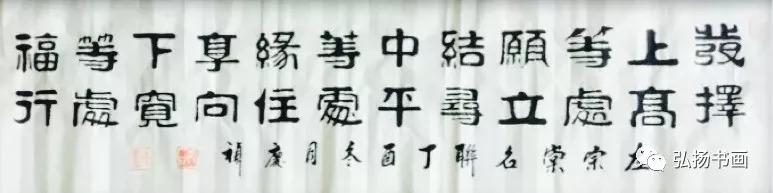 發上等願結中等緣享下等福
擇高處立尋平處住向寬處行
左宗棠名聯丁酉冬月慶
弘扬书画